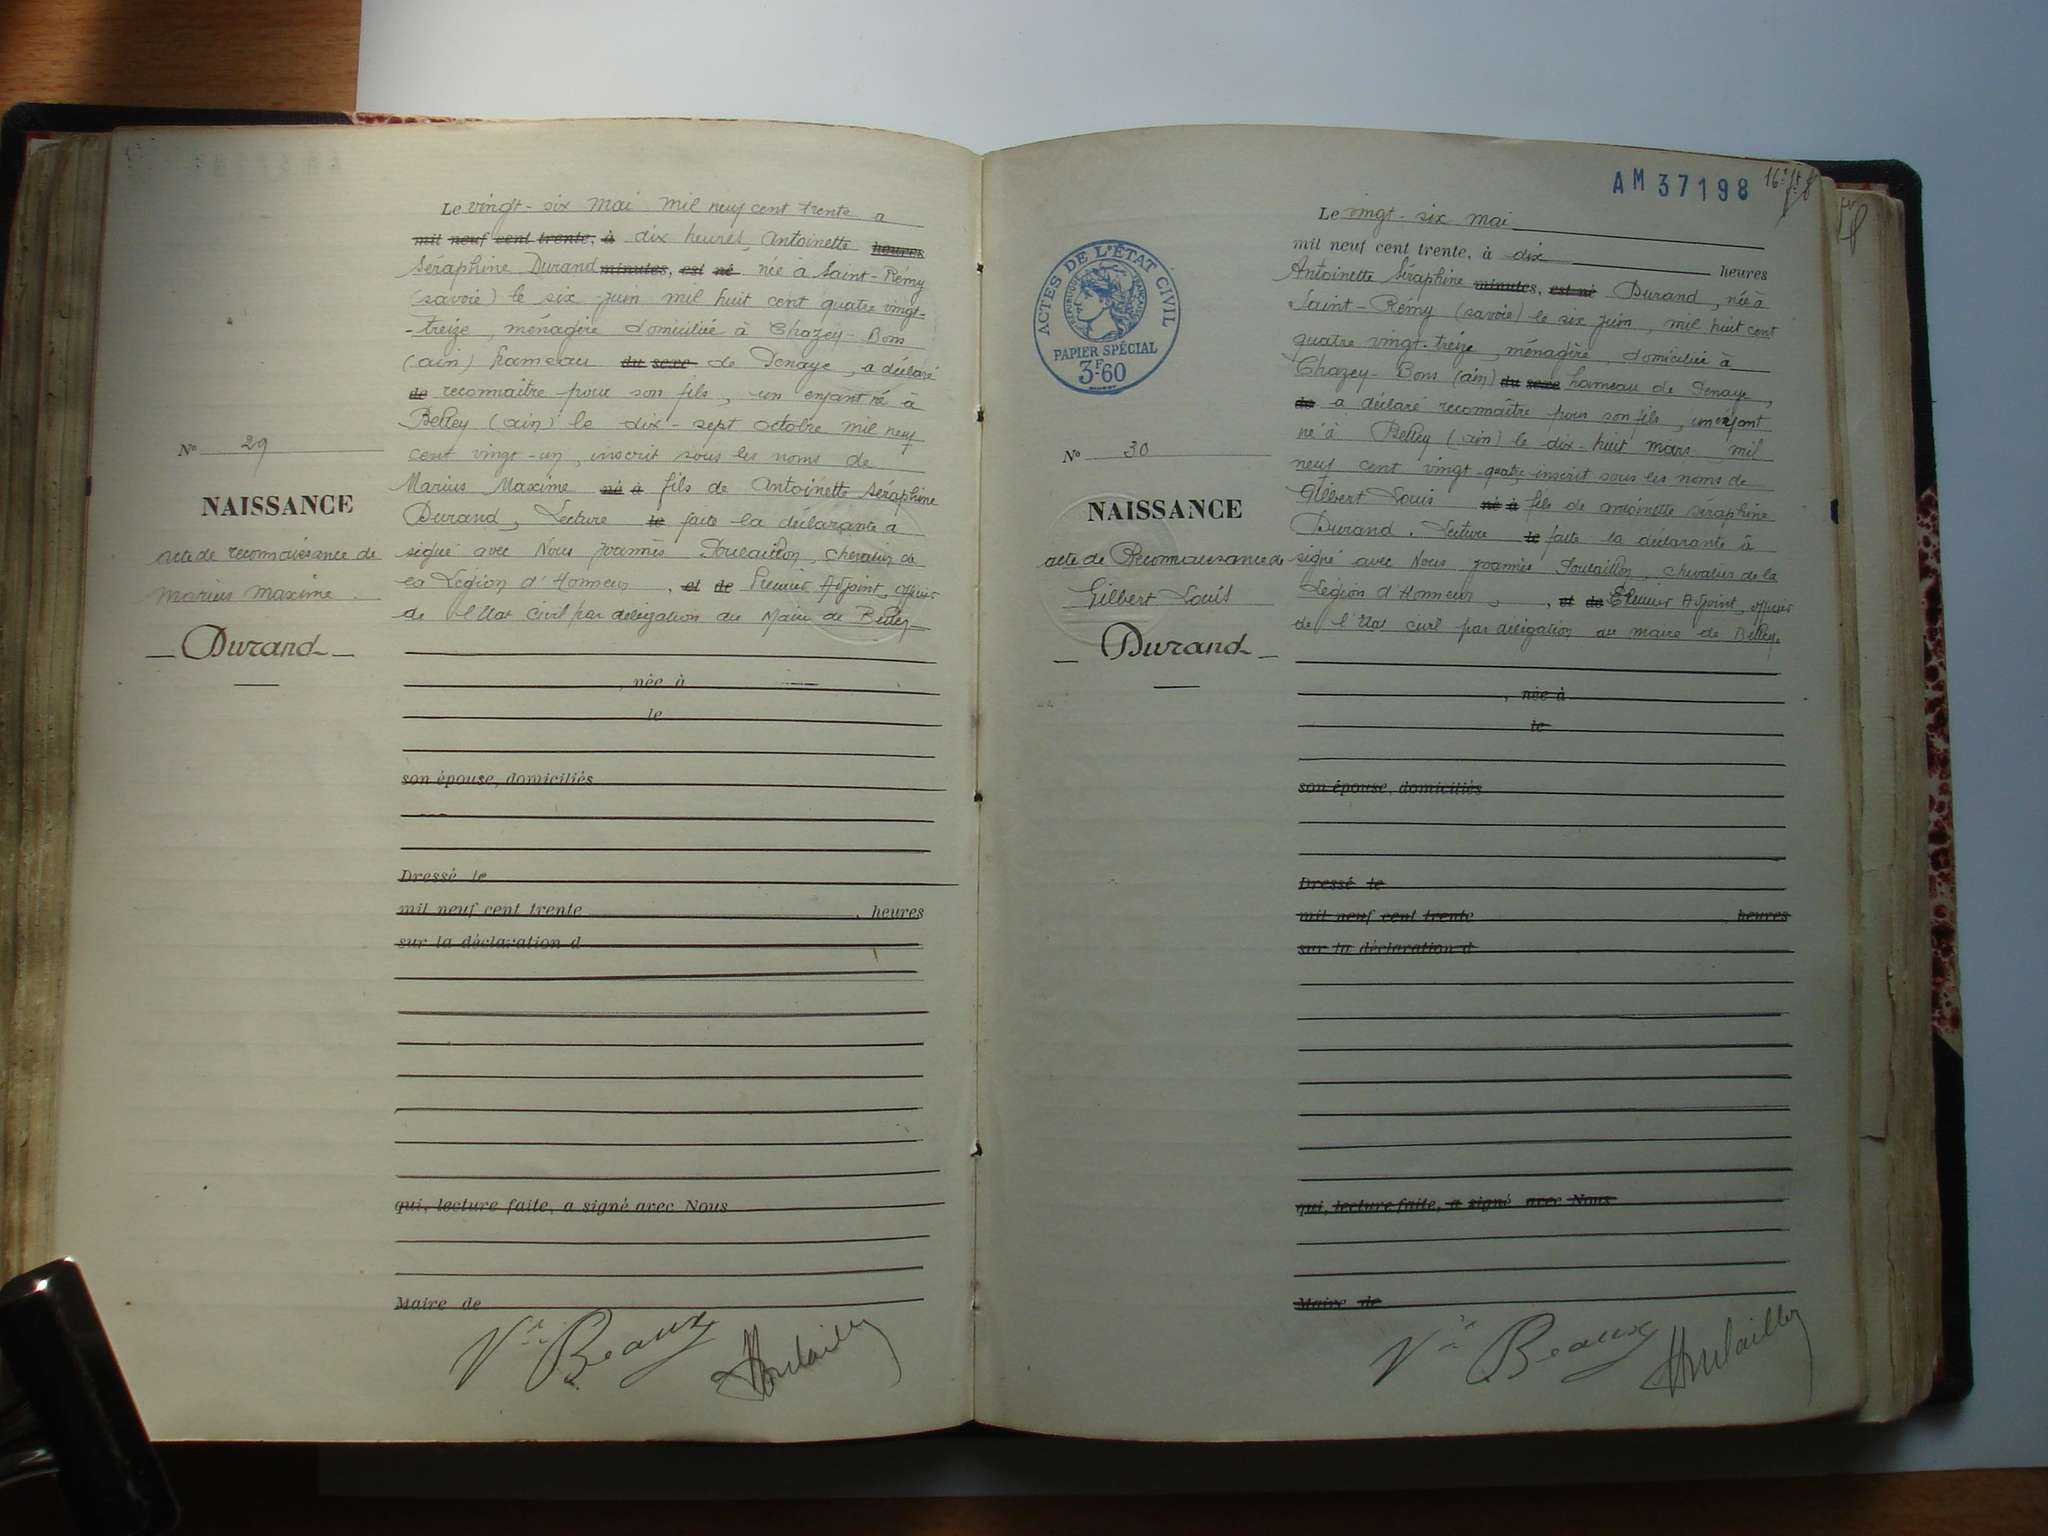 Le vingt-six mai mil neuf cent trente a
mil neuf cent trente, à dix heures, Antoinette heures
Séraphine Durand minutes, est né née à Saint-Rémy
(savoie) le six juin mil huit cent quatre vingt-
-treize, ménagère domiciliée à Chazey-Bons
(ain) hameau du sexe de Penaye, a déclaré
de reconnaître pour son fils, un enfant né à
Belley (ain) le dix-sept octobre mil neuf
cent vingt-un, inscrit sous les noms de
Marius Maxime né à fils de Antoinette Séraphine
Durand, Lecture le faite la déclarante a
signé avec Nous Joannès Poulaillon, chevalier de
la Légion d'Honneur, et de Premier Adjoint, officier
de l'Etat Civil par délégation du Maire de Belley
No 29
NAISSANCE
acte de reconnaissance de
Marius Maxime
Durand
, née à
le
son épouse, domiciliés
Dressé le
mil neuf cent trente , heures
sur la déclaration d
qui, lecture faite, a signé avec Nous
Maire de
Vve Beaux Poulaillon
AM 37198
16e
ACTES DE L'ÉTAT CIVIL
RÉPUBLIQUE FRANÇAISE
PAPIER SPÉCIAL
3F60
Le vingt-six mai
mil neuf cent trente, à dix heures
Antoinette Séraphine minutes, est né Durand, née à
Saint-Rémy (savoie) le six juin, mil huit cent
quatre vingt-treize, ménagère, domiciliée à
Chazey-Bons (ain) du sexe hameau de Penaye,
de a déclaré reconnaître pour son fils, un enfant
né à Belley (ain) le dix-huit mars mil
neuf cent vingt-quatre inscrit sous les noms de
Gilbert Louis né à fils de antoinette séraphine
Durand. Lecture le faite la déclarante à
signé avec Nous Joannès Poulaillon, chevalier de la
Légion d'Honneur, et de Premier Adjoint, officier
de l'Etat civil par délégation du maire de Belley.
No 30
NAISSANCE
acte de Reconnaissance de
Gilbert Louis
Durand
, née à
le
son épouse, domiciliés
Dressé le
mil neuf cent trente heures
sur la déclaration d
qui, lecture faite, a signé avec Nous
Maire de
Vve Beaux Poulaillon